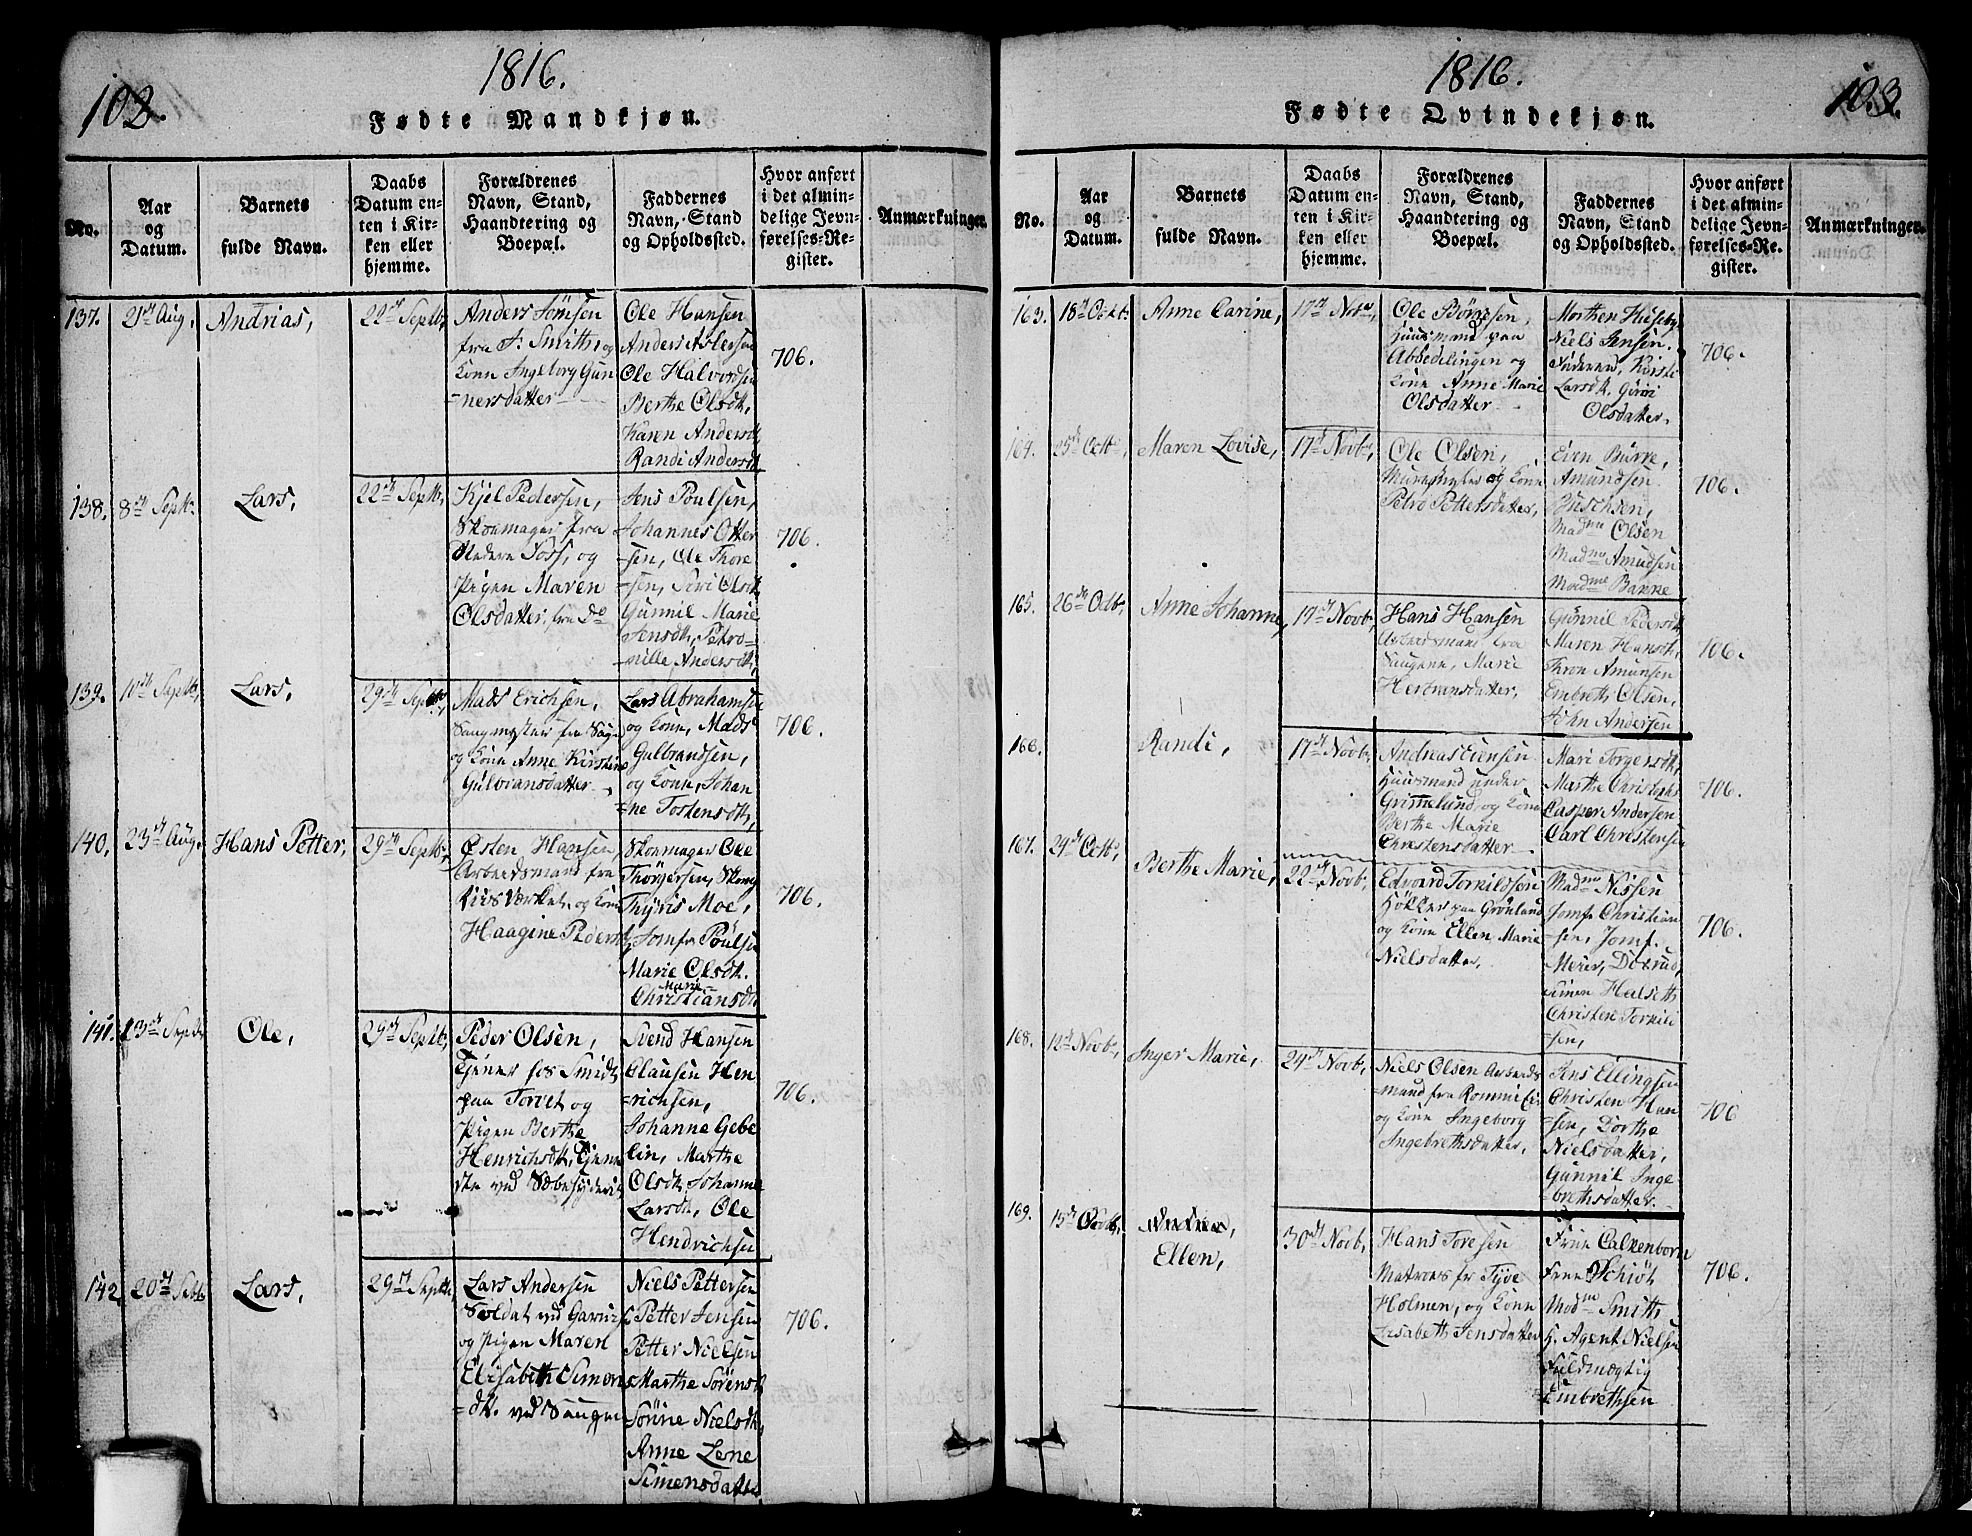 102.
1816.
Fødte Mandkjøn.
No.
Aar
og
Datum.
Barnets
fulde Navn.
Daabs
Datum en-
ten i Kir-
ken eller
hjemme.
Forældrenes
Navn, Stand,
Haandtering og
Boepæl.
Faddernes
Navn, Stand
og Opholdssted.
Hvor anført
i det almin-
delige Jevn-
førelses-Re-
gister.
Anmærkninger.
137.
21de Aug.
Andrias,
22de Septb,
Anders
fra
Kone Ingeborg Gun
=nersdatter
Ole Hansen
Anders
Ole Halvordsen
Berthe Olsdt,
Karen Andersdt
Randi Andersdt
706.
138.
8de Septb.
Lars,
22de Septb,
Kjel Pedersen,
Skoemager fra
og
Pigen Maren
Olsdatter, fra do
Jens Poulsen,
Johannes Otter
=sen, Ole Thore
=sen, Siri Olsdt
Gunnil Marie
Jensdt, Petro=
=nille Andersdt,
706.
139.
10de Septb,
Lars,
29de Septb,
Mads Erichsen,
Saugmester fra
og Kone Anne Kirstine
Lars Abrahamsen
og Kone, Mads
Gulbrandsen,
og Kone, Johan
=ne Tostensdt,
706.
140.
23de Aug.
Hans Petter,
29de Septb,
Østen Hansen,
Arbeidsmand fra
og Kone
Haagine Pedersdt
Skoemager Ole
Thorgersen,
Moe,
Jomfr Poulsen
Marie Olsdt.
Marie=
Christiansdt
706.
141.
13de Septbr
Ole,
29de Septb,
Peder Olsen,
Tjener hos Smidt
paa Torvet og
Pigen Berthe
Henrichsdt, Tjene
ste ved
Svend Hansen
Clausen Hen
=richsen,
Johanne Gebe
lin, Marthe
Olsdt, Johanne
Larsdt, Ole
Hendrichsen
706.
142.
20de Septb
Lars,
29de Septb,
Lars Andersen
Soldat ved
og Pigen Maren
Elisabeth Simens
=dt. ved Saugen
Niels Pettersen
Petter Jensen
Petter Nielsen
Marthe Sørensdt
Nielsdt,
Anne Lene
Simensdatter
706.
1816.
103.
Fødte Qvindekjøn.
No.
Aar
og
Datum.
Barnets
fulde Navn.
Daabs
Datum en-
ten i Kir-
ken eller
hjemme.
Forældrenes
Navn, Stand,
Haandtering og
Boepæl.
Faddernes
Navn, Stand
og Opholdssted.
Hvor anført
i det almin-
delige Jevn-
førelses-Re-
gister.
Anmærkninger.
163.
18de Octb.
Anne Carine,
17de Novb,
Ole
Huusmand paa
Abbedelingen og
Kone Anne Marie
Olsdatter
Morthen Huseby
Niels Jensen
Kirsti
Larsdt, Guri
Olsdatter,
706.
164.
25de Octb,
Maren Lovise,
17de Novb,
Ole Olsen,
og Kone
Pettersdatter,
Even
Amundsen
Madme Olsen
Madme Amudsen
Madme
706.
165.
26de Octb,
Anne Johanne,
17de Novb,
Hans Hansen
Arbeidsmand fra
Saugene, Marie
Gunnil Pedersdt
Maren Hansdt,
Thron Amunsen
Embreth Olsen,
John Andersen
706.
166.
Randi,
17de Novb,
Andreas
Huusmand under
Grimmelund og Kone
Berthe Marie
Christensdatter
Mari Torgersdt,
Marthe
Casper Andersen
Carl Christensen
706.
167.
24de Octb,
Berthe Marie,
22de Novb,
Edvard Torkildsen
Høkker paa Grønland
og Kone Ellen Marie
Nielsdatter,
Madme Nissen
Jomfr Christian
=sen, Jomf.
Meier,
Simen Halseth
Christen Torkild
sen,
706.
168.
12de Novb,
Inger Marie,
24de Novb,
Niels Olsen Arbeids
=mand fra
og Kone Ingeborg
Ingebrethsdatter,
Jens Ellingsen
Christen Han
=sen, Dorthe
Nielsdatter,
Gunnil Inge
=brethsdatter.
706
169.
15de Octb,
Ellen,
30de Novb,
Hans Toresen
Matroes fr Tyve
Holmen, og Kone
Lisabeth Jensdatter
Frue Calkenborn
Frue Schiøt
Madme Smith
H. Agent Nielsen
Fuldmægtig
Embrethsen
706.